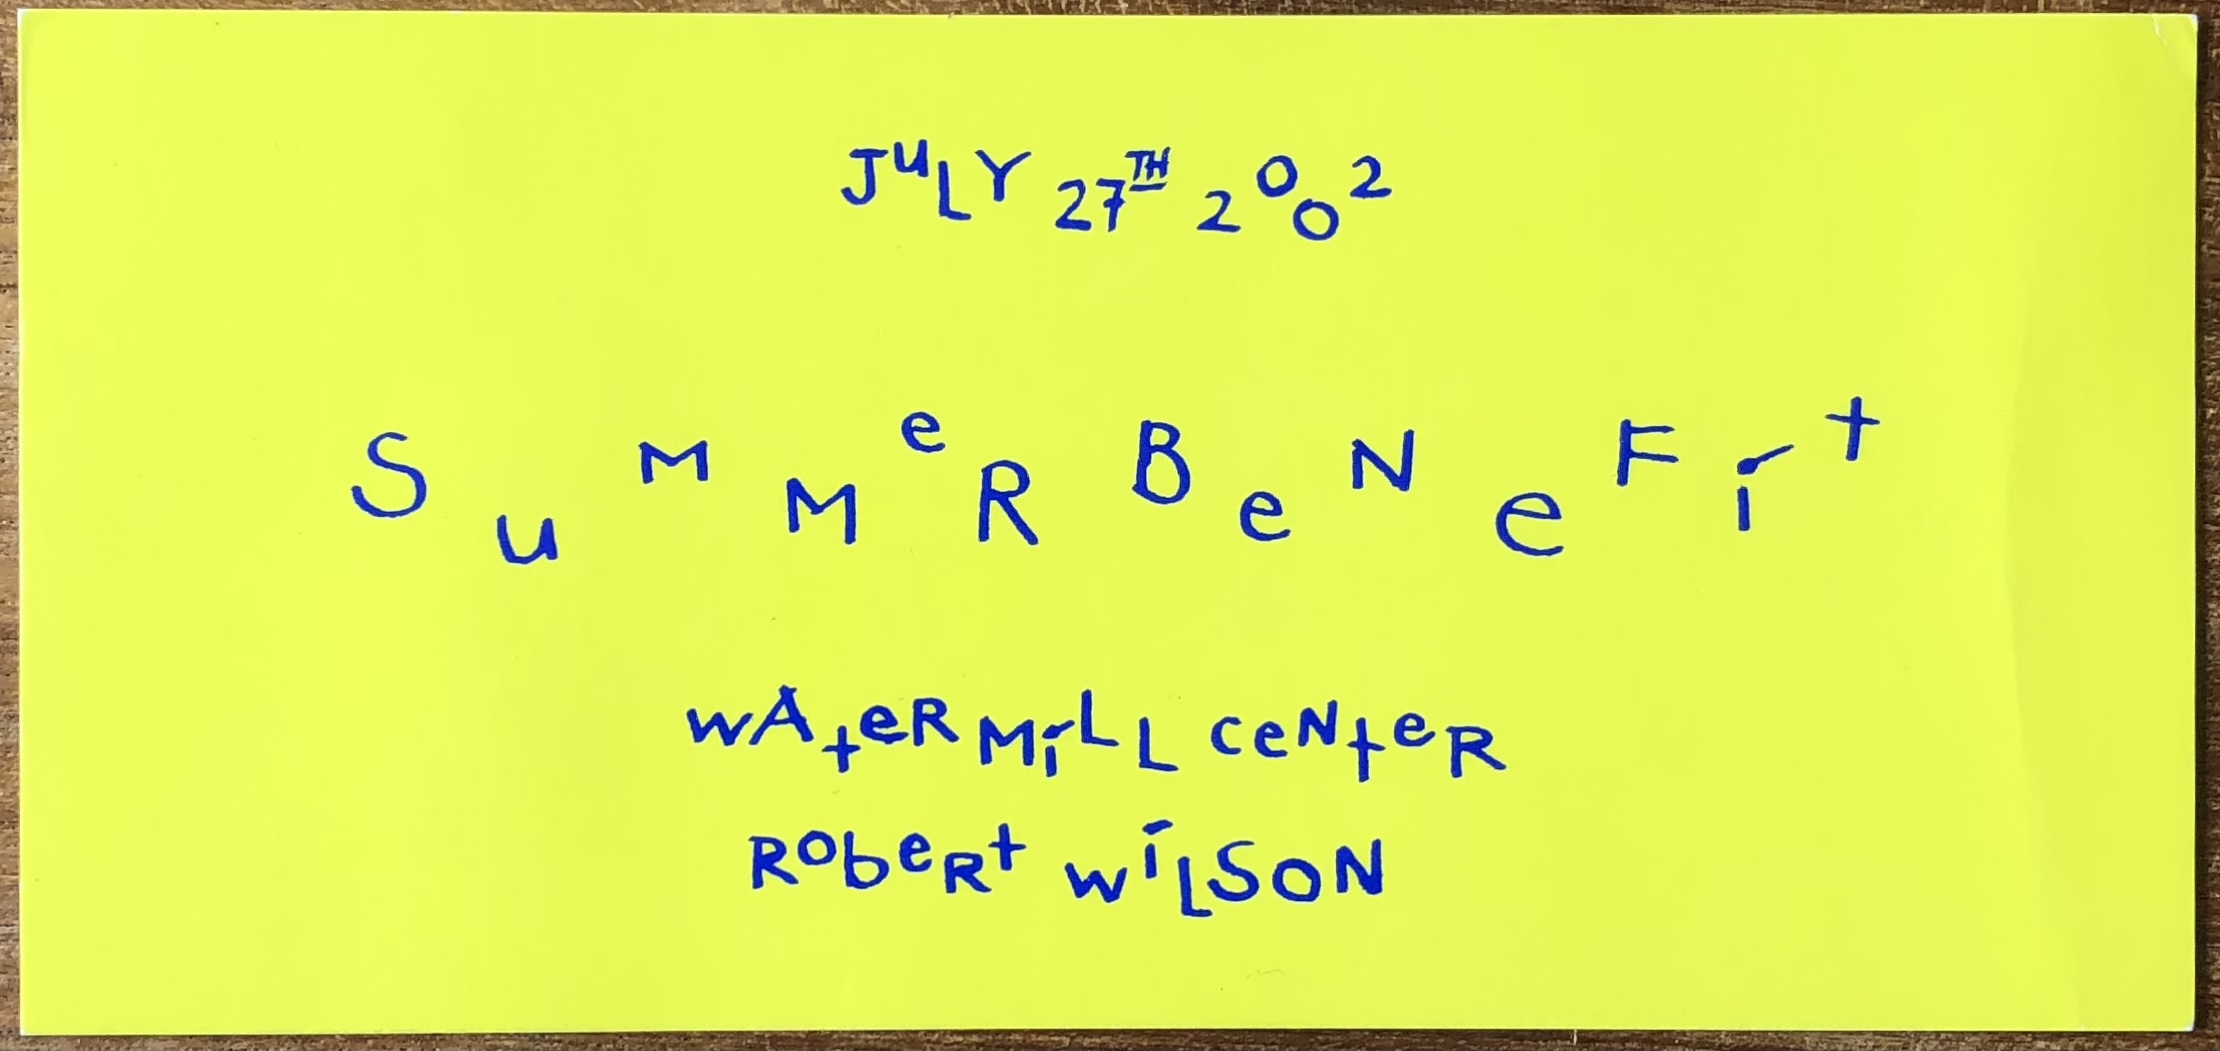 JuLY 27TH 2002
SuMMeR BeNeFit
wAteR MiLL CeNteR
RObeRt wiLSON